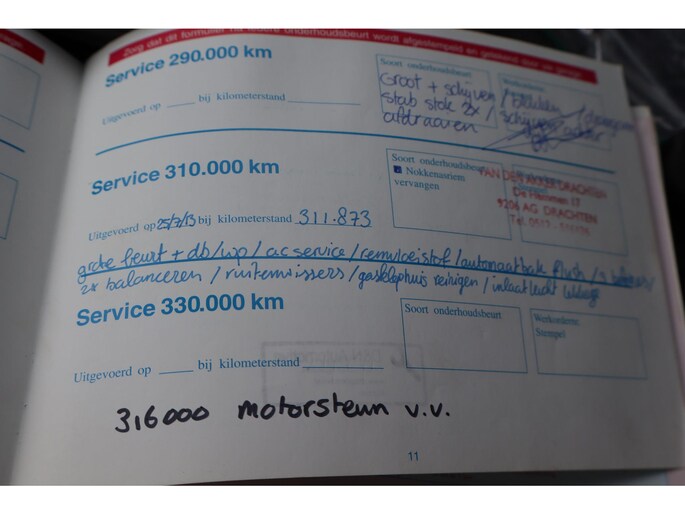 Zorg dat dit formulier na iedere onderhoudsbeurt wordt afgestempeld en getekend door uw garage
Service 290.000 km
Uitgevoerd op bij kilometerstand
Soort onderhoudsbeurt
Groot + schijven /
stab stok 2x /
afdraaien
Service 310.000 km
Uitgevoerd op 25/7/13 bij kilometerstand 311.873
Soort onderhoudsbeurt
Nokkenasriem
vervangen
VAN DEN AKKER DRACHTEN
9206 AG DRACHTEN
grote beurt + db/wp / ac service / remvloeistof / automaatbak flush /
2x balanceren / ruitenwissers / gasklephuis reinigen / inlaat lucht lekkage
Service 330.000 km
Uitgevoerd op bij kilometerstand
Soort onderhoudsbeurt
Werkordernr.
Stempel
316000 motorsteun v.v.
11